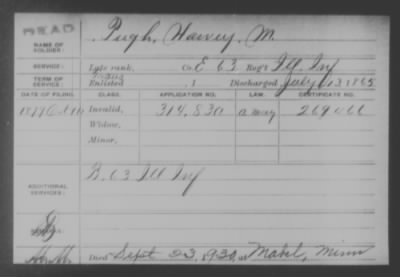 DEAD
NAME OF SOLDIER: Pugh, Harvey, M.
SERVICE: Late rank, Co. E. 63 Reg't Ill Inf
TERM OF SERVICE: Enlisted , 1 Discharged July 13 1865
DATE OF FILING. CLASS. APPLICATION NO. LAW. CERTIFICATE NO.
1879 Invalid, 314,830
Widow,
Minor,
ADDITIONAL SERVICES: B. 63 Ill Inf
Died Sept 23, 1930, at Mabel, Minn